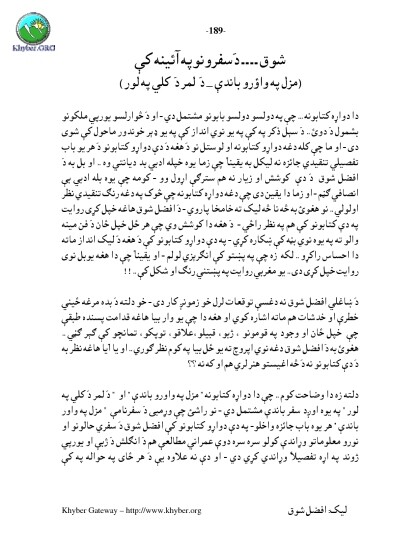 -189-
Khyber.ORG
شوق ---- دَ سفرونو په آئينه کې
(مزل په واؤرو باندې _ دَ لمر دَ کلي په لور)
دا دواړه کتابونه... چې په دولسو دولسو بابونو مشتمل دي - او دَ څوارلسو يورپي ملکونو
بشمول دَ دوئ.. دَ سېل ذکر په کې په يو نوي انداز کې په يو ډېر خوندور ماحول کې شوی
دی - او ما چې کله دغه دواړو کتابونو او لوستل نو دَ هغه دَ دواړو کتابونو دَ هر يو باب
تفصيلي تنقيدي جائزه نه ليکل به يقيناً چې زما يوه خپله ادبي بد ديانتي وه .. او بل به دَ
افضل شوق دَ دې کوشش او زيار نه هم سترګې اړول وو - کومه چې يوه بله ادبي بې
انصافي ګڼم - او زما دا يقين دی چې دغه دواړه کتابونه چې څوک په دغه رنګ تنقيدي نظر
اولولي.. نو هغوئ به څه نا څه ليک ته خامخا پاروي - دَ افضل شوق هاغه خپل کړی روايت
په دې کتابونو کې هم په نظر راځي - دَ هغه دا کوشش وي چې هر ځل خپل ځان دَ فن مينه
والو ته په يوه نوې بڼه کې ښکاره کړي - په دې دواړو کتابونو کې دَ هغه دَ ليک انداز ماته
دا احساس راکړو.. لکه زه چې په پښتو کې انګرېزي لولم - او يقيناً چې دا هغه يو بل نوی
روايت خپل کړی دی.. يو مغربي روايت په پښتني رنګ او شکل کې.. !!
دَ ښاغلي افضل شوق نه دغسې توقعات لرل خو زمونږ کار دی - خو دلته دَ بده مرغه ځيني
خطرې او خدشات هم ماته اشاره کوي او هغه دا چې يو وار بيا هاغه قدامت پسنده طبقې
چې خپل ځان او وجود په قومونو ، ژبو، قبيلو، علاقو، ټوپکو، تمانچو کې ګېر ګڼي..
هغوئ به دَ افضل شوق دغه نوي اپروچ ته يو ځل بيا په کوم نظر ګوري.. او يا آيا هاغه نظر به
دَ دې کتابونو نه دَ څه اغيستو هنر لري هم او که نه ؟؟
دلته زه دا وضاحت کوم.. چې دا دواړه کتابونه " مزل په واورو باندې " او " دَ لمر دَ کلي په
لور " په يوه اوږد سفر باندې مشتمل دي - نو راشئ چې وړمبی دَ سفرنامې " مزل په واورو
باندې " هر يوه باب جائزه واخلو - په دې دواړو کتابونو کې افضل شوق دَ سفري حالونو او
نورو معلوماتو وړاندې کولو سره سره دوي عمراني مطالعې هم دَ انګلش دَ ژبې او يورپي
ژوند په اړه تفصيلاً وړاندې کړي دي - او دې نه علاوه يې دَ هر ځای په حواله په کې
Khyber Gateway – http://www.khyber.org
ليک: افضل شوق